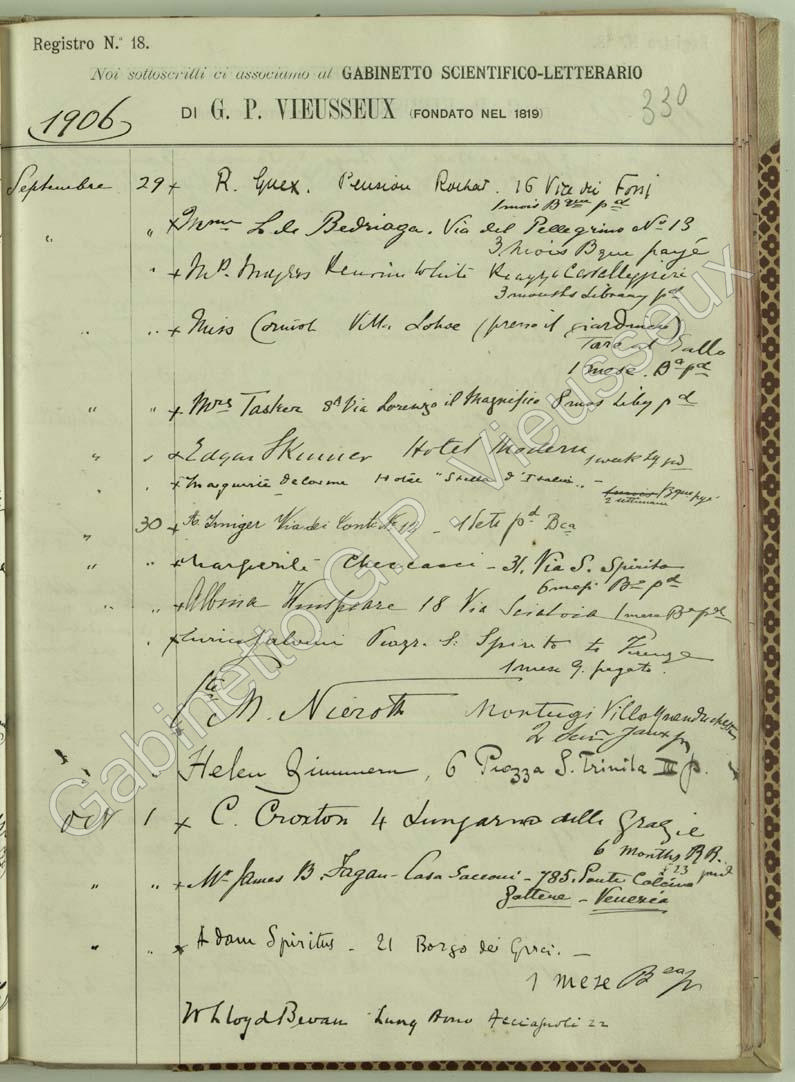 Registro N.° 18.
Noi sottoscritti ci associamo al GABINETTO SCIENTIFICO-LETTERARIO
330
1906
DI G. P. VIEUSSEUX (FONDATO NEL 1819)
Septembre 29 x R. Guex. Pension Rochat. 16 Via dei Fossi
1 mois Bque pd
" " x Mme L. de Bedriaga. Via del Pellegrino No 13
3 mois Bque payé
" x White Piazza Cavalleggieri
3 months Library pd
" " x Miss Villa (presso il giardiniere)
Torre al Gallo
1 mese. Ba pd
" " x Mrs Tasker 8A Via Lorenzo il Magnifico 8 mos Liby pd
" " x Edgar Skinner Hotel Modern 1 week Ly pd
" x Marguerite Delorme Hotel "Stella d'Italia" - Bque payé
2 settimane
" 30 x A. Iniger Via dei Conti No 14 - 1 Sett. pd Bca
" " x Marguerite Checcacci - 31, Via S. Spirito
6 mesi Bca pd
" " x Albina 18 Via Scialoia 1 mese Ba pd
" x Piazz. S. Spirito Firenze
1 mese G. pagato.
Cte M. Nieroth Montughi Villa
2
" " Helen Zimmern, 6 Piazza S. Trinita III p.
Oct 1 x C. Croxton 4 Lungarno delle Grazie
6 months R R.
" " x Mr James B. Fagan - Casa - 785. Ponte Calcina
Zattere - Venezia
" " x Adam Spiritus - 21 Borgo dei Greci. -
1 mese
W Lloyd Bevan Lung Arno Acciaguoli 22
Gabinetto G.P. Vieusseux